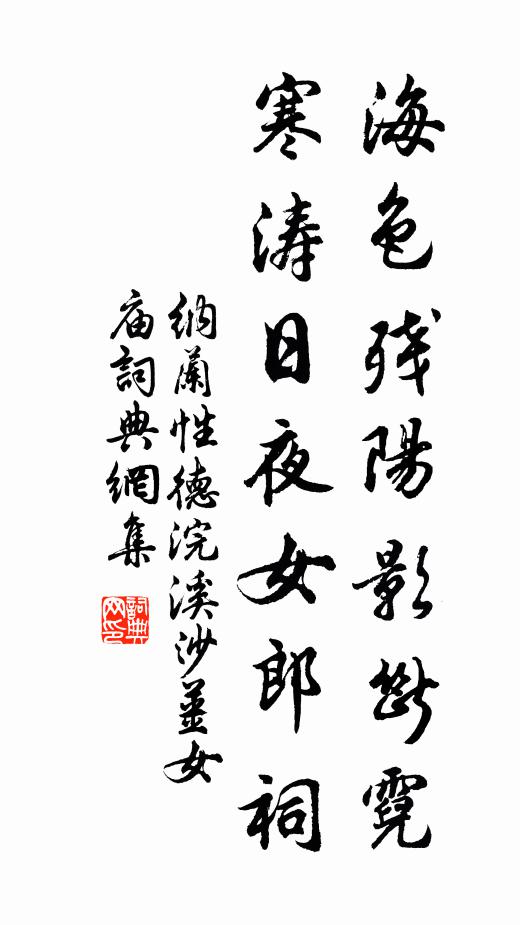 海色残陽影斷霓
寒濤日夜女郎祠
納蘭性德浣溪沙薑女
庙詞典網集
詞典網印